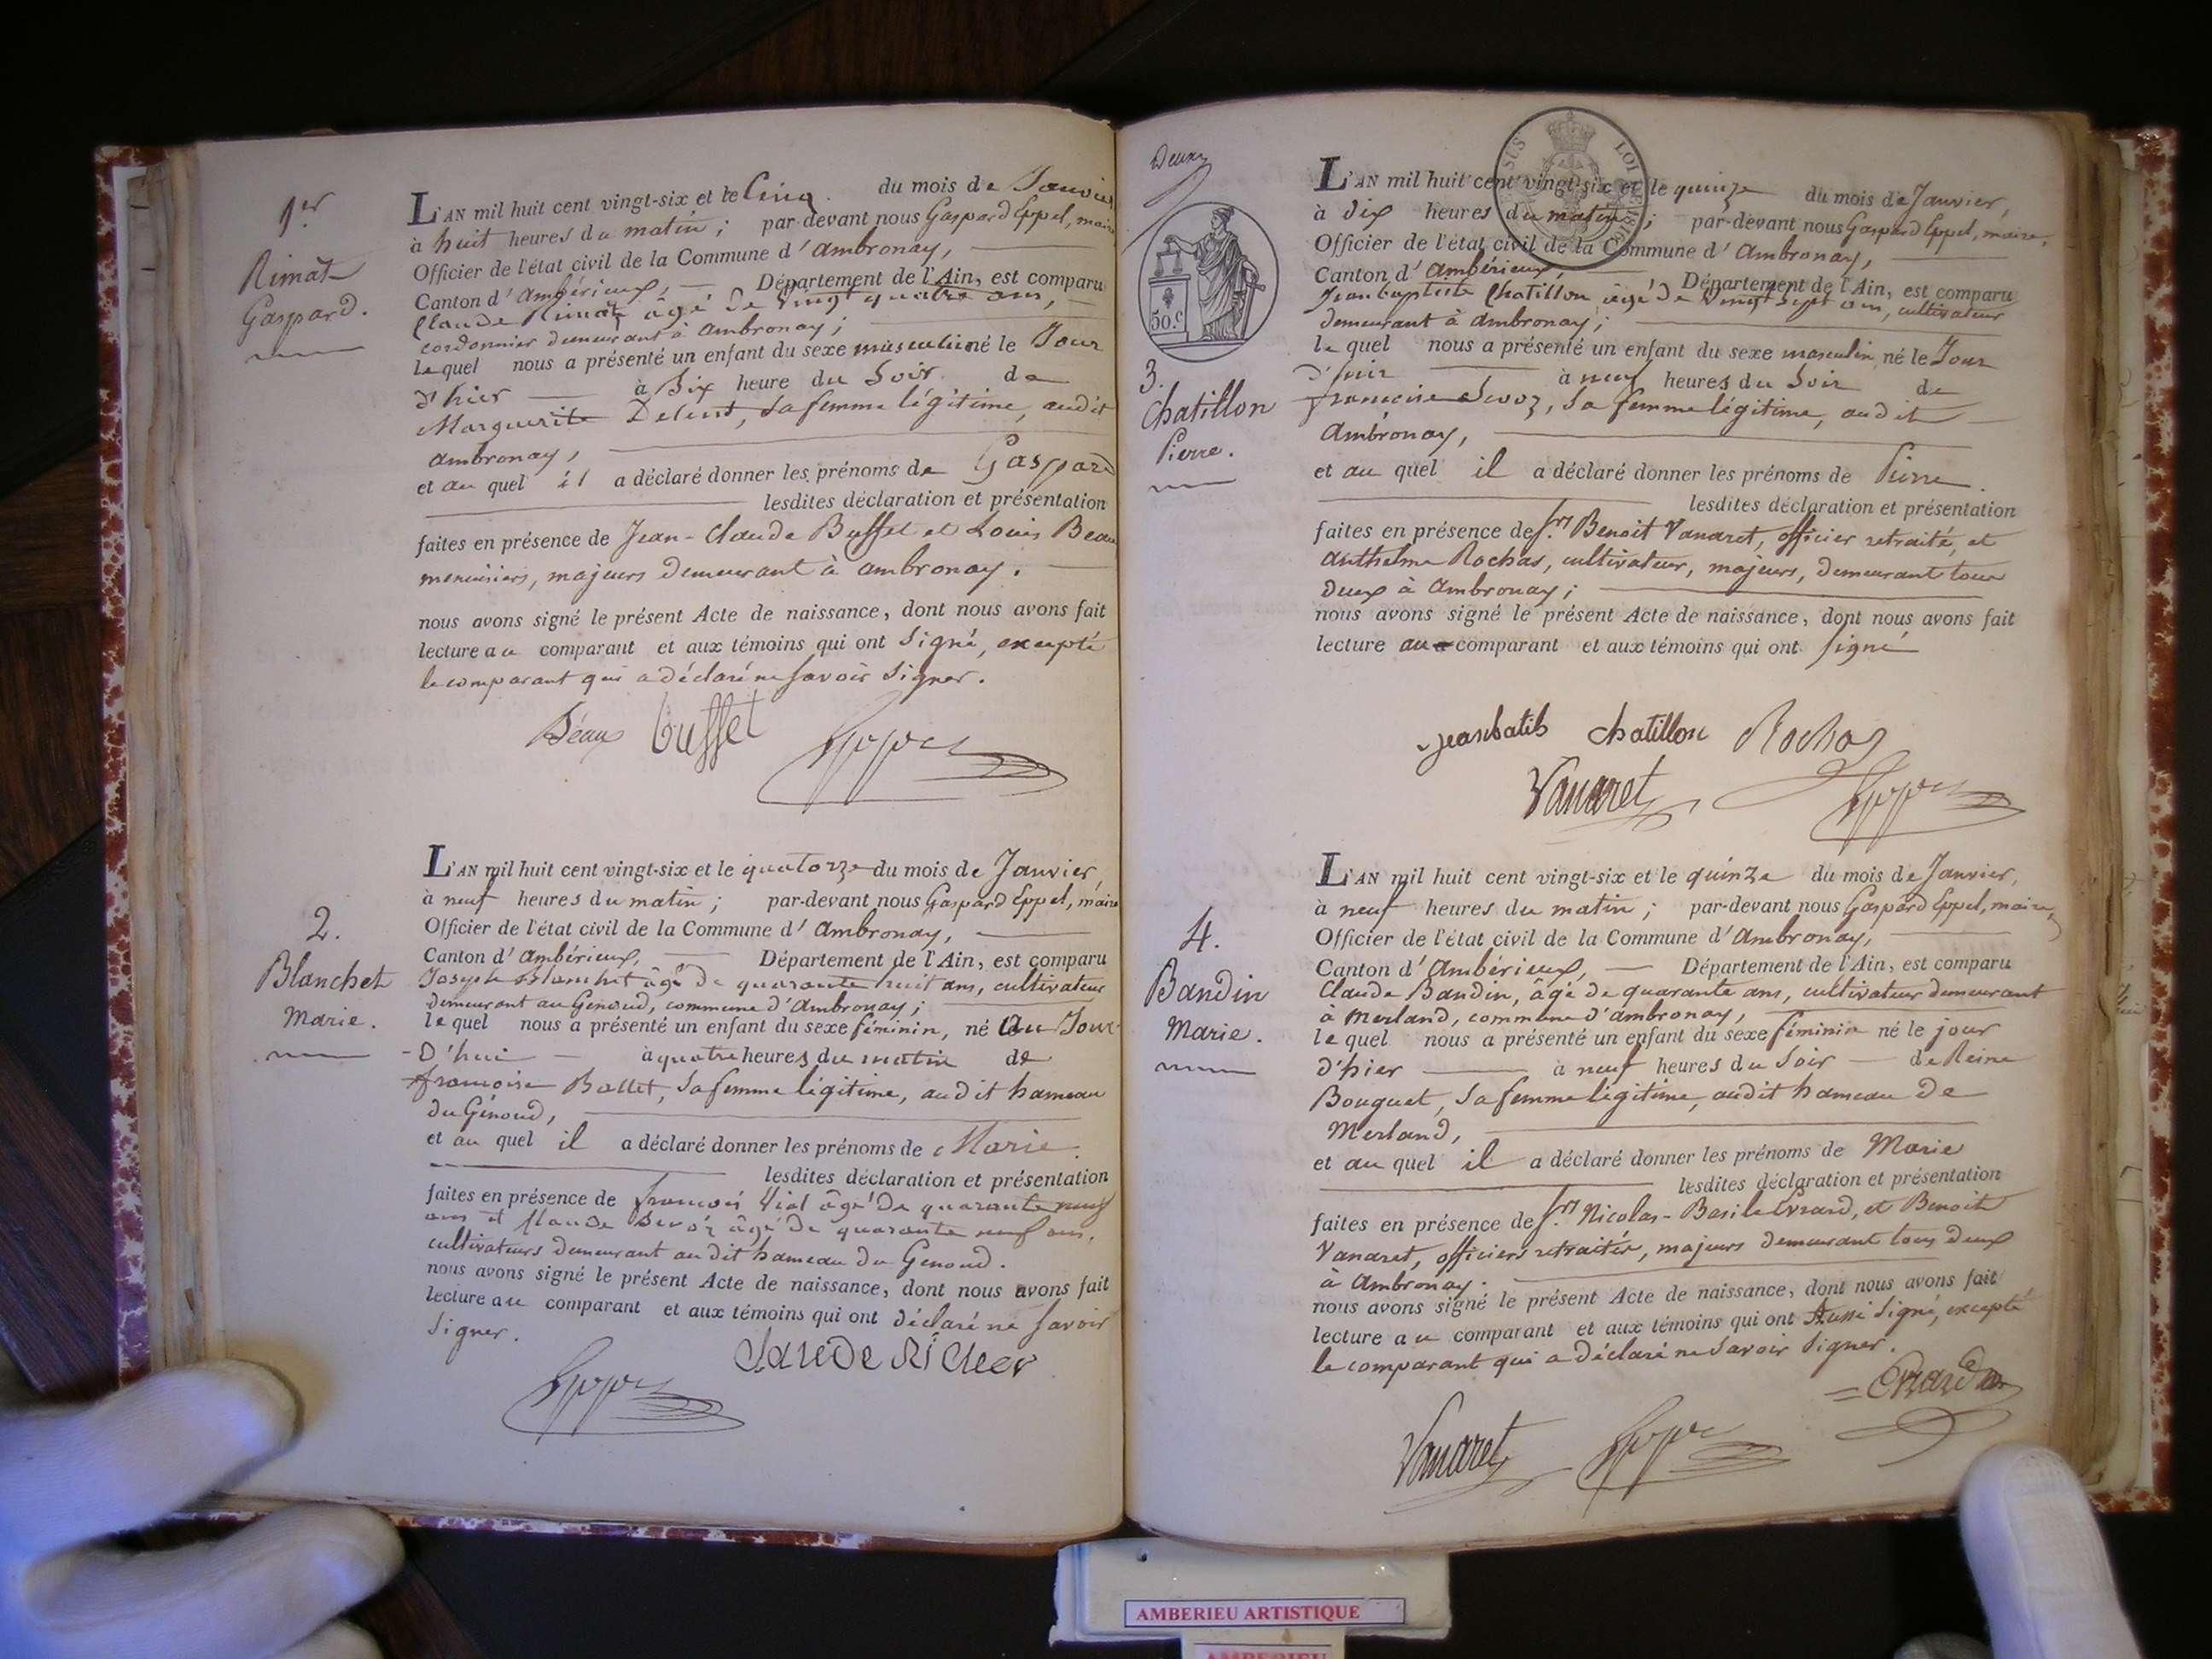 1er
Rimat
Gaspard.
L'AN mil huit cent vingt-six et le Cinq du mois de Janvier
à huit heures du matin; par-devant nous Gaspard Eppel, maire
Officier de l'état civil de la Commune d'Ambronay,
Canton d'Ambérieux, Département de l'Ain, est comparu
Claude Rimat âgé de vingt quatre ans,
cordonnier demeurant à Ambronay;
lequel nous a présenté un enfant du sexe masculin né le Jour
d'hier à Six heure du Soir de
Marguerite, Sa femme légitime, audit
Ambronay,
et au quel il a déclaré donner les prénoms de Gaspard
lesdites déclaration et présentation
faites en présence de Jean-Claude Buffet et Louis Beau
menuisiers, majeurs demeurant à Ambronay.
nous avons signé le présent Acte de naissance, dont nous avons fait
lecture au comparant et aux témoins qui ont Signé, excepté
le comparant qui a déclaré ne Savoir Signer.
Béaux buffet
2.
Blanchet
Marie.
L'AN mil huit cent vingt-six et le quatorze du mois de Janvier,
à neuf heures du matin; par-devant nous Gaspard Eppel, maire
Officier de l'état civil de la Commune d'Ambronay,
Canton d'Ambérieux, Département de l'Ain, est comparu
Joseph Blanchet âgé de quarante huit ans, cultivateur
demeurant au Genoud, commune d'Ambronay;
lequel nous a présenté un enfant du sexe féminin, né au Jour
-D'hui à quatre heures du matin de
françoise Ballet, Sa femme légitime, audit hameau
du Génoud,
et au quel il a déclaré donner les prénoms de Marie.
lesdites déclaration et présentation
faites en présence de françois Vial âgé de quarante neuf
ans et Claude Sevoz âgé de quarante neuf ans,
cultivateurs demeurant audit hameau du Genoud.
nous avons signé le présent Acte de naissance, dont nous avons fait
lecture au comparant et aux témoins qui ont déclaré ne Savoir
Signer.
Deux
50.c
3.
Chatillon
Pierre.
L'AN mil huit cent vingt-six et le quinze du mois de Janvier,
à dix heures du matin; par-devant nous Gaspard Eppel, maire,
Officier de l'état civil de la Commune d'Ambronay,
Canton d'Ambérieux, Département de l'Ain, est comparu
Jean baptiste Chatillon âgé de vingt Sept ans, cultivateur
demeurant à Ambronay;
lequel nous a présenté un enfant du sexe masculin né le Jour
d'hier à neuf heures du Soir de
françoise Sevoz, Sa femme légitime, audit
Ambronay,
et au quel il a déclaré donner les prénoms de Pierre
lesdites déclaration et présentation
faites en présence de Srs Benoit Vanaret, officier retraité, et
Anthelme Rochas, cultivateur, majeurs, demeurant tous
deux à Ambronay;
nous avons signé le présent Acte de naissance, dont nous avons fait
lecture au comparant et aux témoins qui ont Signé
Chatillon Rochas
Vanaret
4.
Bandin
Marie.
L'AN mil huit cent vingt-six et le quinze du mois de Janvier,
à neuf heures du matin; par-devant nous Gaspard Eppel, maire,
Officier de l'état civil de la Commune d'Ambronay,
Canton d'Ambérieux, Département de l'Ain, est comparu
Claude Bandin, âgé de quarante ans, cultivateur demeurant
à Merland, commune d'Ambronay,
lequel nous a présenté un enfant du sexe féminin né le jour
d'hier à neuf heures du Soir de Reine
Bouquet, Sa femme légitime, audit hameau de
Merland,
et au quel il a déclaré donner les prénoms de Marie
lesdites déclaration et présentation
faites en présence de Srs Nicolas-Basile Evrard, et Benoit
Vanaret, officiers retraités, majeurs demeurant tous deux
à Ambronay.
nous avons signé le présent Acte de naissance, dont nous avons fait
lecture au comparant et aux témoins qui ont Aussi Signé, excepté
le comparant qui a déclaré ne Savoir Signer.
Vanaret
AMBERIEU ARTISTIQUE
AMBERIEU